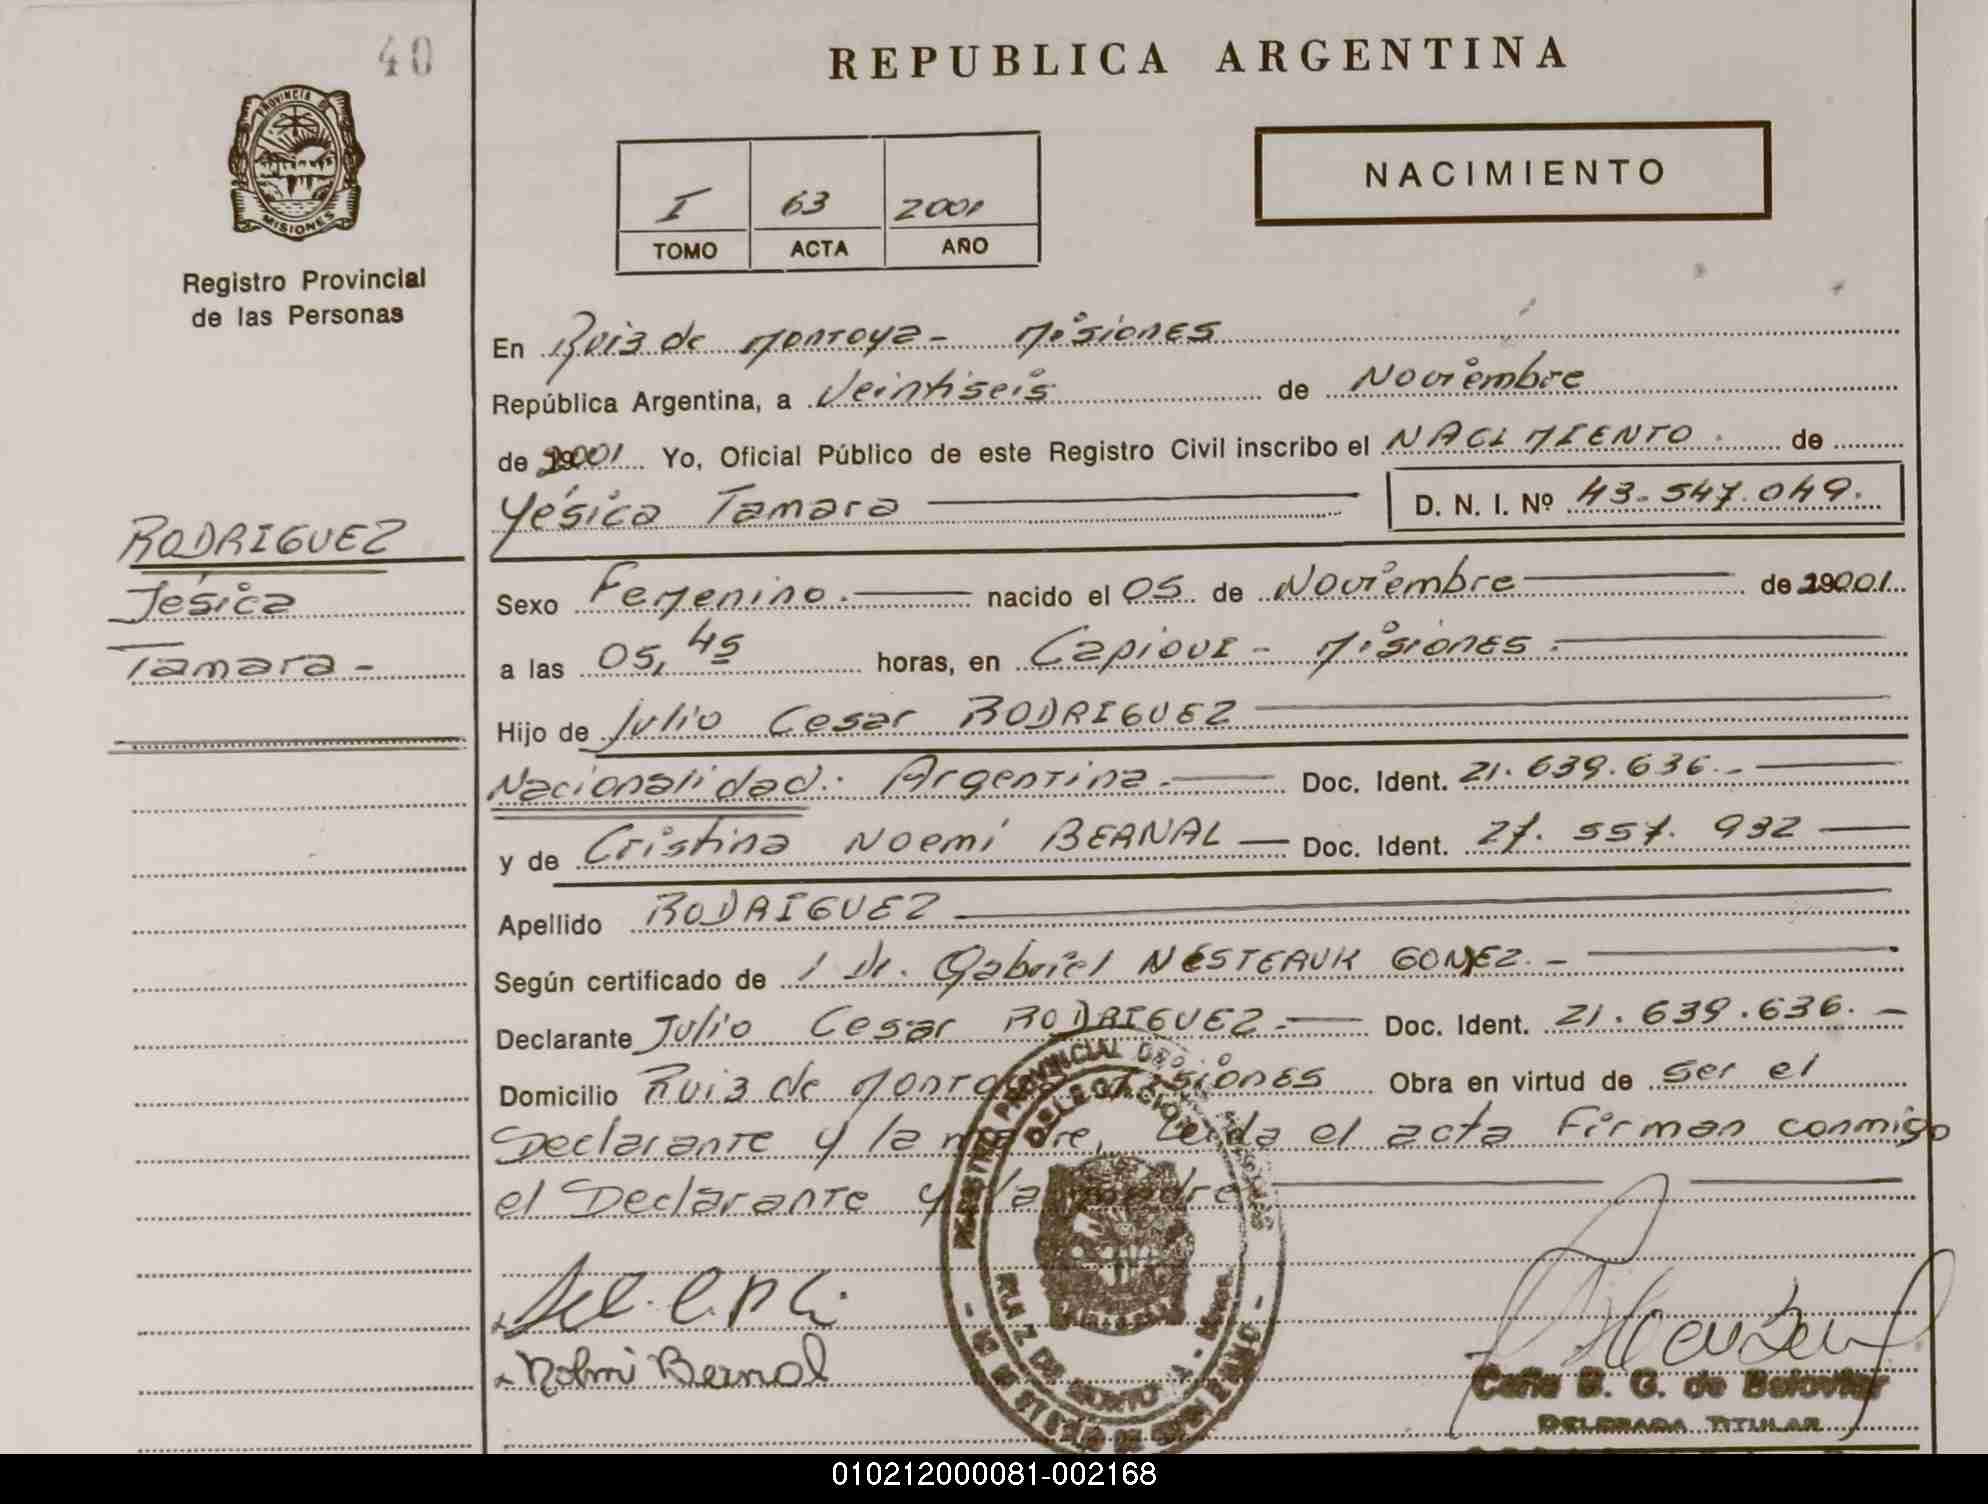 40
REPUBLICA ARGENTINA
PROVINCIA DE
MISIONES
Registro Provincial
de las Personas
NACIMIENTO
I 63 2001
TOMO ACTA AÑO
En Ruiz de Montoya - Misiones
República Argentina, a Veintiseis de Noviembre
de 2001 Yo, Oficial Público de este Registro Civil inscribo el NACIMIENTO de
Yésica Tamara D. N. I. Nº 43.547.049.
RODRIGUEZ
Jésica
Tamara -
Sexo Femenino. nacido el 05 de Noviembre de 2001
a las 05,45 horas, en Capiovi - Misiones.
Hijo de Julio Cesar RODRIGUEZ
Nacionalidad: Argentina.- Doc. Ident. 21.639.636.-
y de Cristina Noemí BERNAL Doc. Ident. 27.557.932
Apellido RODRIGUEZ
Según certificado de Dr. Gabriel NESTERUK GOMEZ.-
Declarante Julio Cesar RODRIGUEZ.- Doc. Ident. 21.639.636.-
Domicilio Ruiz de Montoya Misiones Obra en virtud de ser el
Declarante y la madre, Leída el acta Firman conmigo
el Declarante y la madre
REGISTRO PROVINCIAL DE LAS PERSONAS
DELEGACION
RUIZ DE MONTOYA - Misiones
Noemi Bernal
DELEGADA TITULAR
010212000081-002168